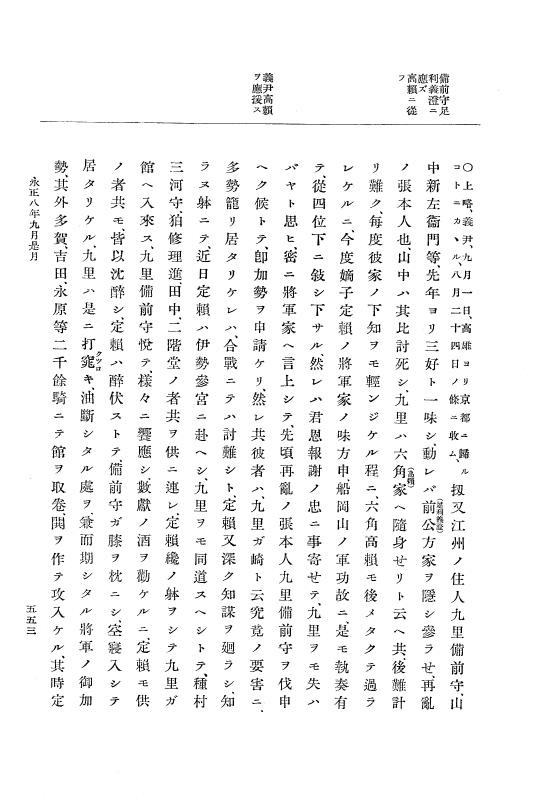 備前守足
利義澄ニ
應ズ
高賴ニ從
フ
義尹高賴
ヲ應援ス
〇上略、義尹、九月一日、高雄ヨリ京都ニ歸ル
コトニカヽル、八月二十四日ノ條ニ收ム、
扨又江州ノ住人九里備前守、山
中新左衞門等、先年ヨリ三好ト一味シ、動レバ前公方家ヲ隱シ參ラせ、再亂
(足利義澄)
ノ張本人也、山中ハ其比討死シ、九里ハ六角家ヘ隨身せリト云ヘ共、後難計
(高賴)
リ難ク、每度彼家ノ下知ヲモ輕ンジケル程ニ、六角高賴モ後メタクテ過ラ
レケルニ、今度嫡子定賴ノ將軍家ノ味方申、船岡山ノ軍功故ニ、是モ執奏有
テ、從四位下ニ敍シ下サル、然レハ君恩報謝ノ忠ニ事寄せテ、九里ヲモ失ハ
バヤト思ヒ、密ニ將軍家ヘ言上シテ、先頃再亂ノ張本人九里備前守ヲ伐申
ヘク候トテ、卽加勢ヲ申請ケリ、然レ共彼者ハ、九里ガ崎ト云究竟ノ要害ニ、
多勢籠リ居タリケレハ、合戰ニテハ討難シト、定賴又深ク知謀ヲ廻ラシ、知
ラヌ躰ニテ、近日定賴ハ伊勢參宮ニ赴ヘシ、九里ヲモ同道スヘシトテ、種村
三河守、狛修理進、田中、二階堂ノ者共ヲ供ニ連レ、定賴纔ノ躰ヲシテ九里ガ
館ヘ入來ス、九里備前守悅テ、樣々ニ饗應シ、數獻ノ酒ヲ勸ケルニ、定賴モ供
ノ者共モ皆以沈醉シ、定賴ハ醉伏ストテ、備前守ガ膝ヲ枕ニシ、空寢入シテ
居タリケル、九里ハ是ニ打寵キ、油斷シタル處ヲ、兼而期シタル將軍ノ御加
クツロ
勢、其外多賀、吉田、永原等二千餘騎ニテ館ヲ取卷、鬨ヲ作テ攻入ケル、其時定
永正八年九月是月
五五三